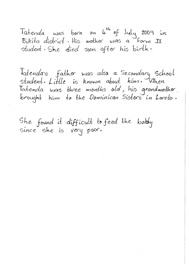 Tatenda was born on 4th of July 2009 in
district. His mother was a Form II
student. She died soon after his birth.
Tatenda's father was also a Secondary School
student. Little is known about him. When
Tatenda was three months old, his grandmother
brought him to the Dominican Sisters in Loreto.
She found it difficult to feed the baby
since she is very poor.